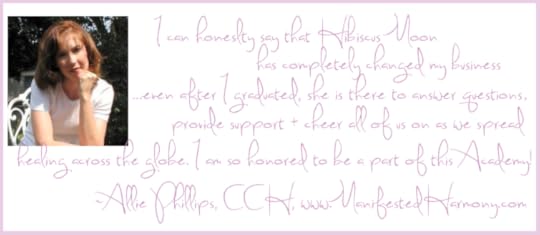 I can honeslty say that Hibiscus Moon
has completely changed my business
...even after I graduated, she is there to answer questions,
provide support + cheer all of us on as we spread
healing across the globe. I am so honored to be a part of this Academy!
-Allie Phillips, CCH, www.ManifestedHarmony.com